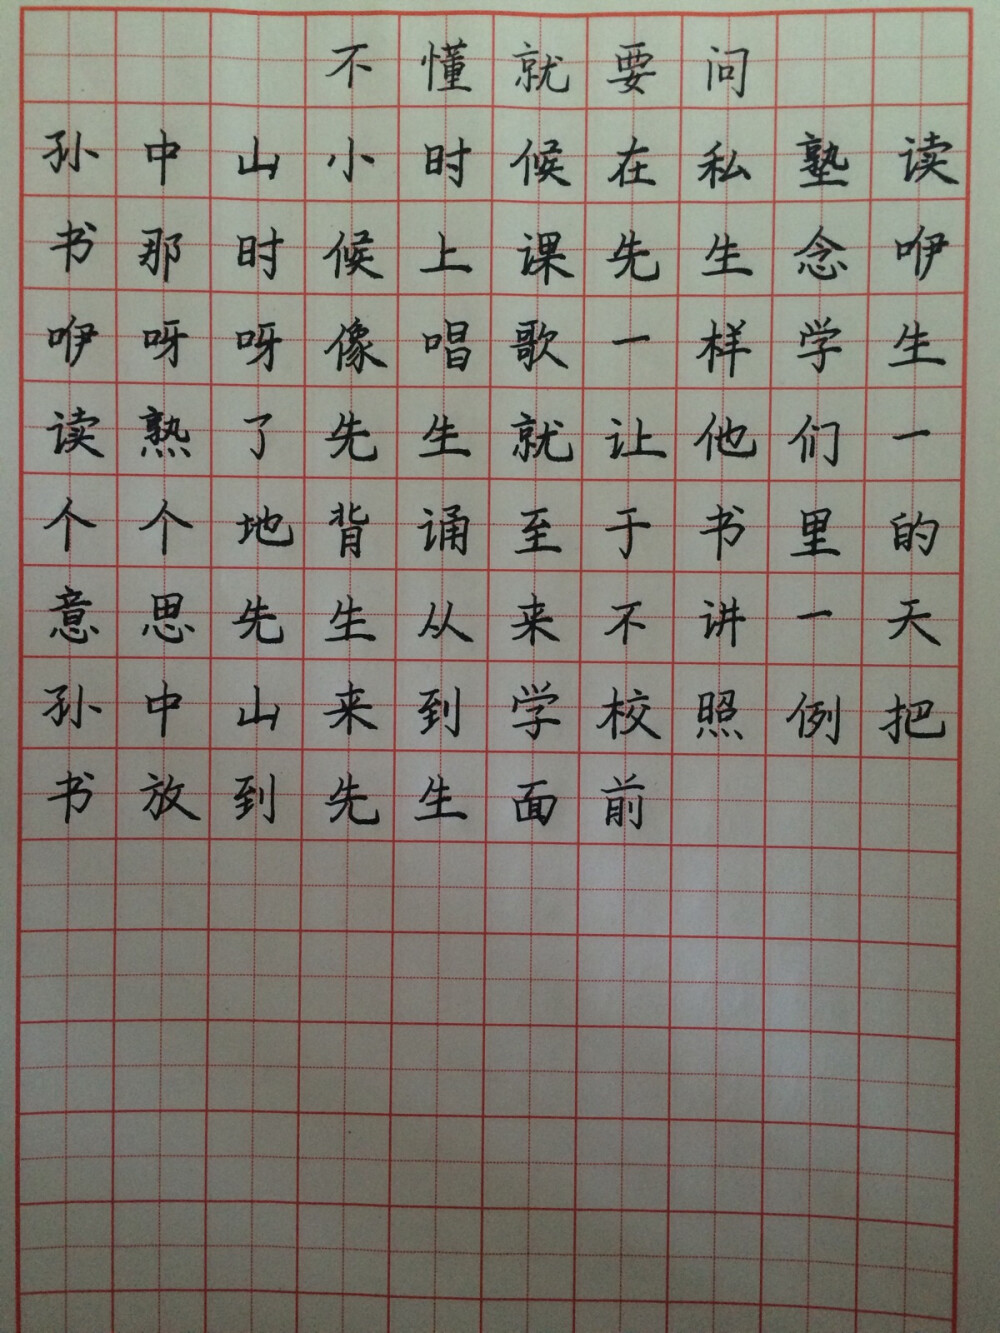 不懂就要问
孙中山小时候在私塾读
书那时候上课先生念咿
咿呀呀像唱歌一样学生
读熟了先生就让他们一
个个地背诵至于书里的
意思先生从来不讲一天
孙中山来到学校照例把
书放到先生面前